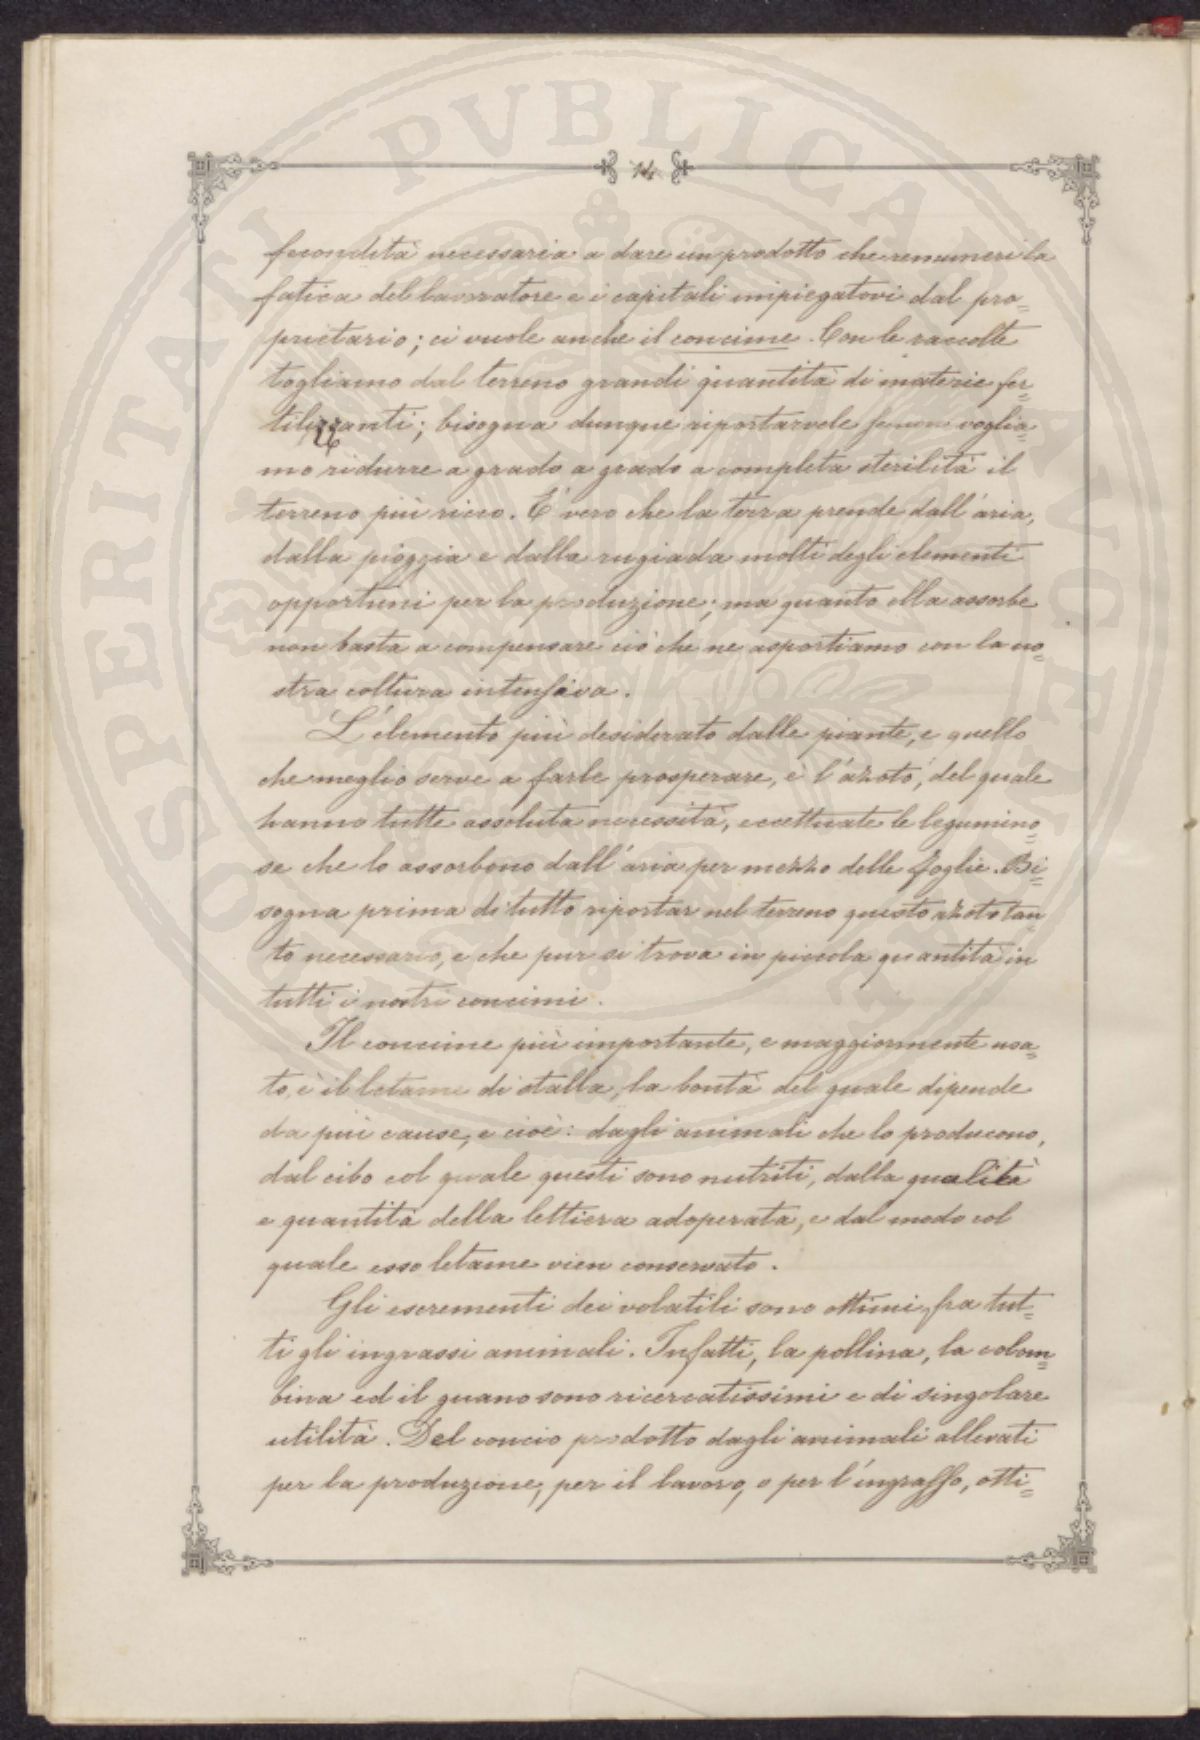 14
fecondità necessaria a dare un prodotto che renumeri la
fatica del lavoratore e i capitali impiegatovi dal pro=
prietario; ci vuole anche il concime. Con le raccolte
togliamo dal terreno grandi quantità di materie fer=
tilizzanti; bisogna dunque riportarvele se non voglia=
mo ridurre a grado a grado a completa sterilità il
terreno più ricco. E' vero che la terra prende dall'aria,
dalla pioggia e dalla rugiada molti degli elementi
opportuni per la produzione; ma quanto ella assorbe
non basta a compensare ciò che ne asportiamo con la no=
stra coltura intensiva.
L'elemento più desiderato dalle piante, e quello
che meglio serve a farle prosperare, è l'azoto, del quale
hanno tutte assoluta necessità, eccettuate le legumino=
se che lo assorbono dall'aria per mezzo delle foglie. Bi=
sogna prima di tutto riportar nel terreno questo azoto tan=
to necessario, e che pur si trova in piccola quantità in
tutti i nostri concimi.
Il concime più importante, e maggiormente usa=
to, è il letame di stalla, la bontà del quale dipende
da più cause, e cioè: dagli animali che lo producono,
dal cibo col quale questi sono nutriti, dalla qualità
e quantità della lettiera adoperata, e dal modo col
quale esso letame vien conservato.
Gli escrementi dei volatili sono ottimi fra tut=
ti gli ingrassi animali. Infatti, la pollina, la colom=
bina ed il guano sono ricercatissimi e di singolare
utilità. Del concio prodotto dagli animali allevati
per la produzione, per il lavoro, o per l'ingrasso, otti=
PROSPERITATI PUBLICAE AUGENDAE